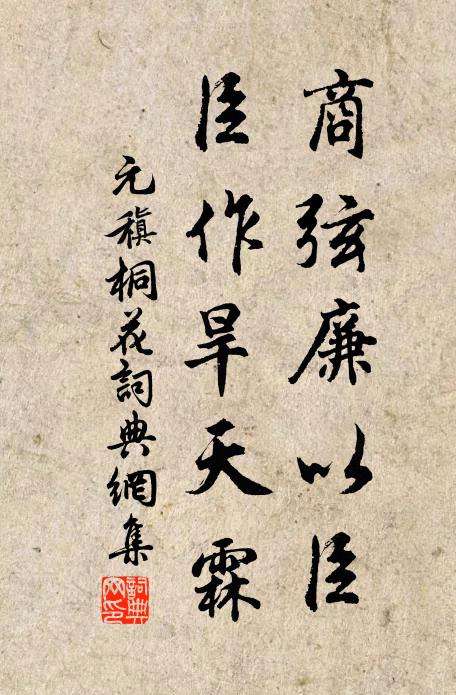 商弦廉以臣
臣作旱天霖
元稹桐花詞典網集
詞典網印